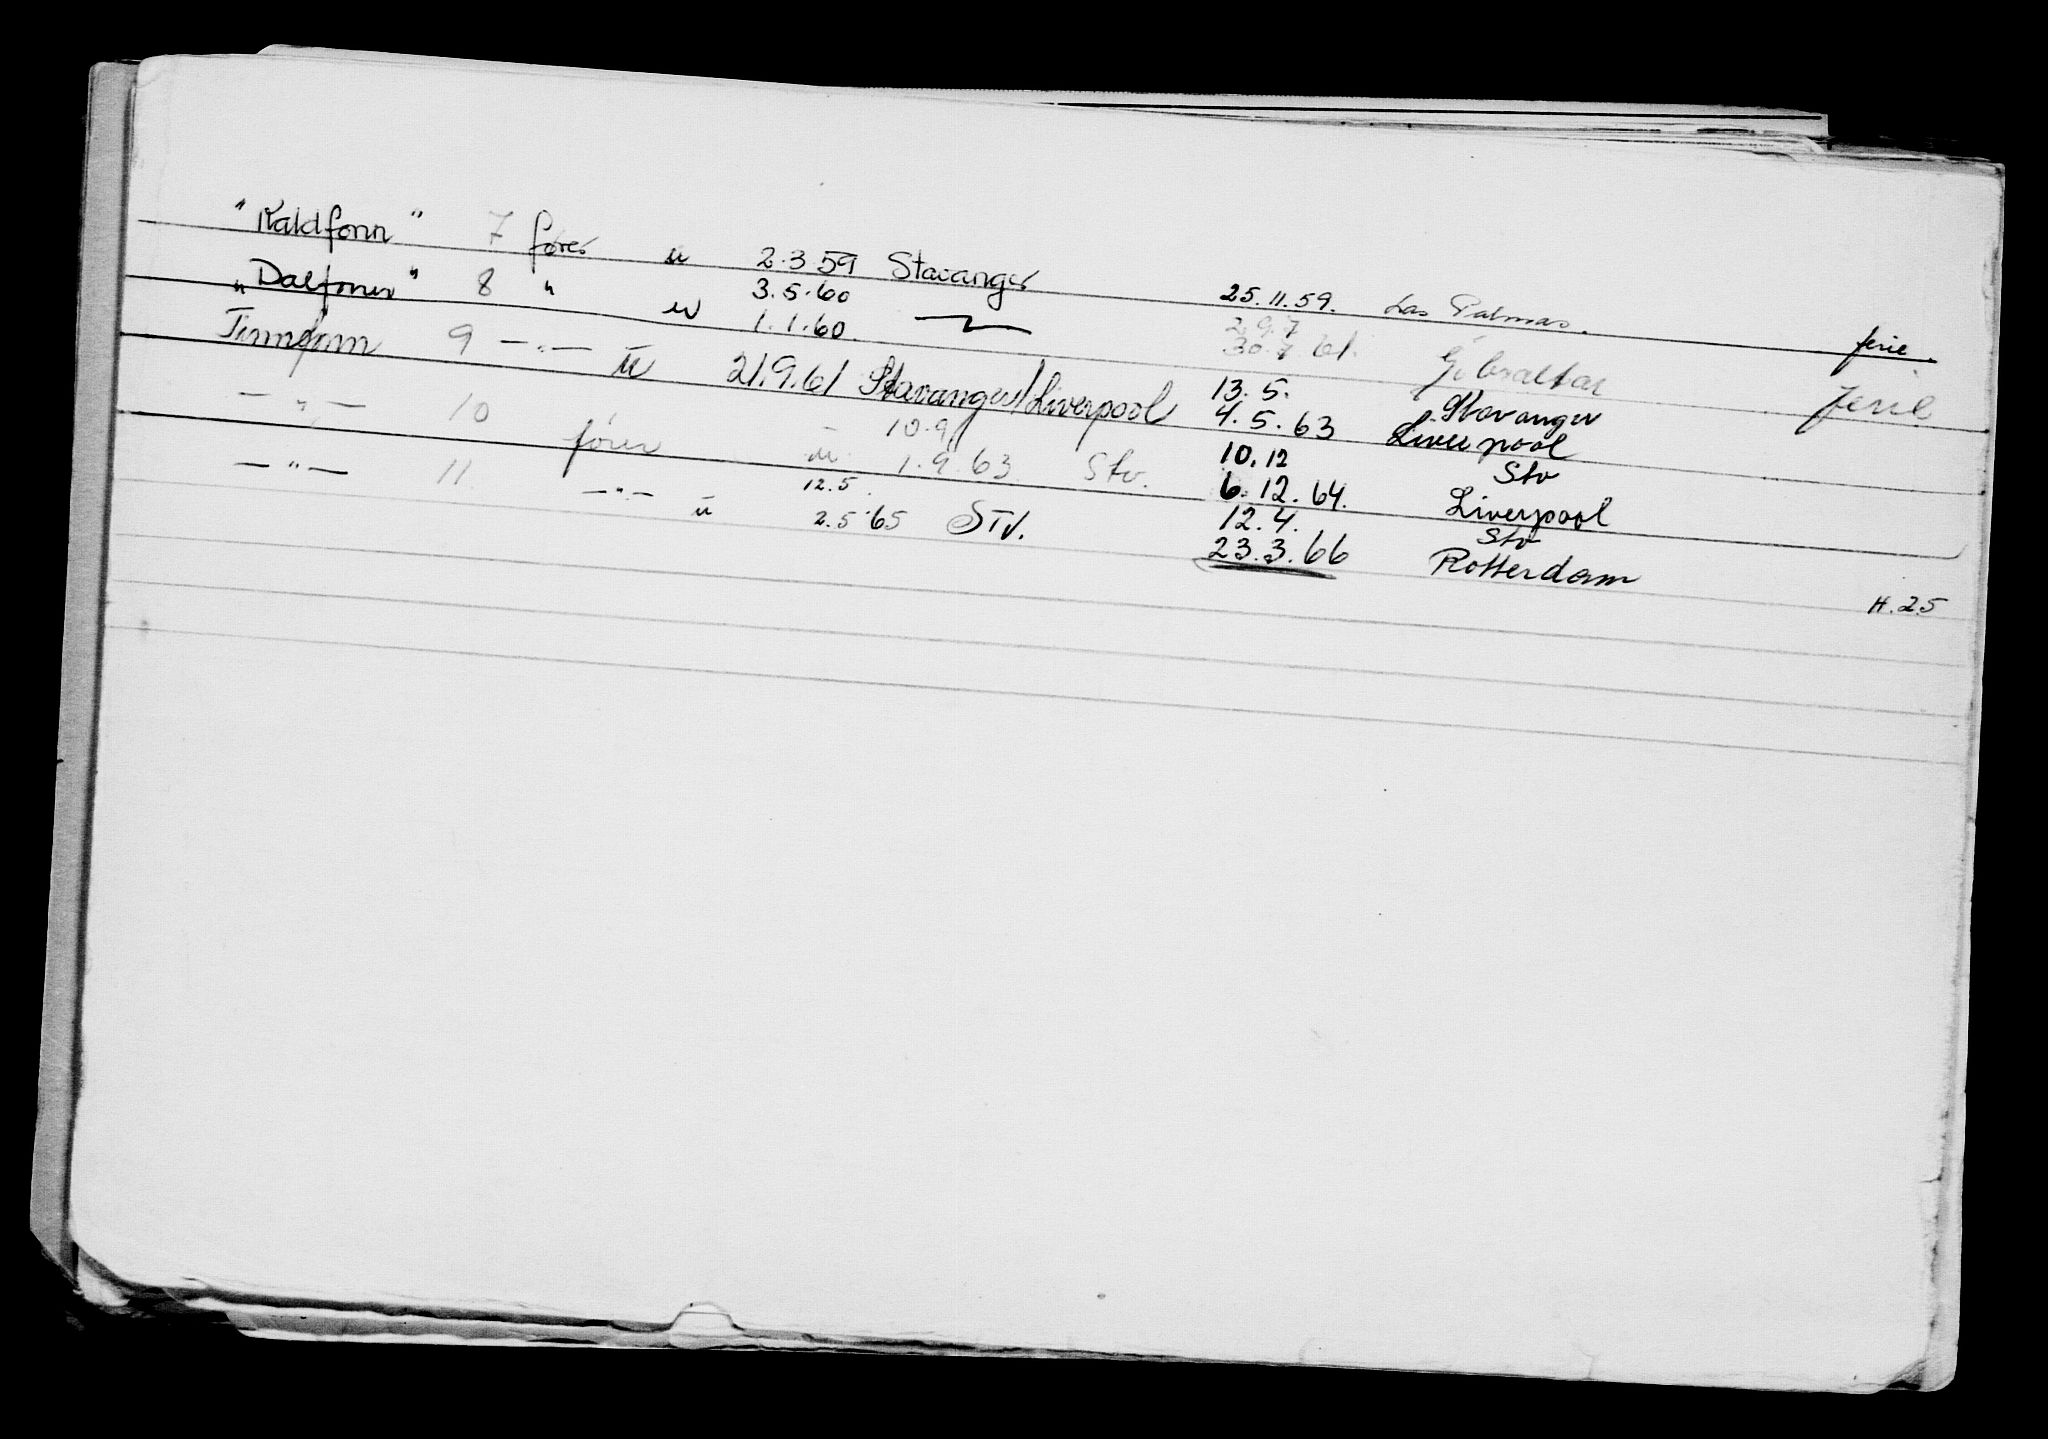 "Kaldfonn" 7 fører u 2.3.59 Stavanger 25.11.59. Las Palmas. ferie.
"Dalfonn" 8 " u 3.5.60 1.1.60. 29.7 30.7.61. Gibraltar ferie
Finnfonn 9 —"— u 21.9.61 Stavanger/Liverpool 13.5. Stavanger 4.5.63 Liverpool
—"— 10 fører u 10.9 1.9.63 Stv. 10.12 Stv 6.12.64. Liverpool
—"— 11 —"— u 12.5. 2.5.65 Stv. 12.4. Stv 23.3.66 Rotterdam
H.25